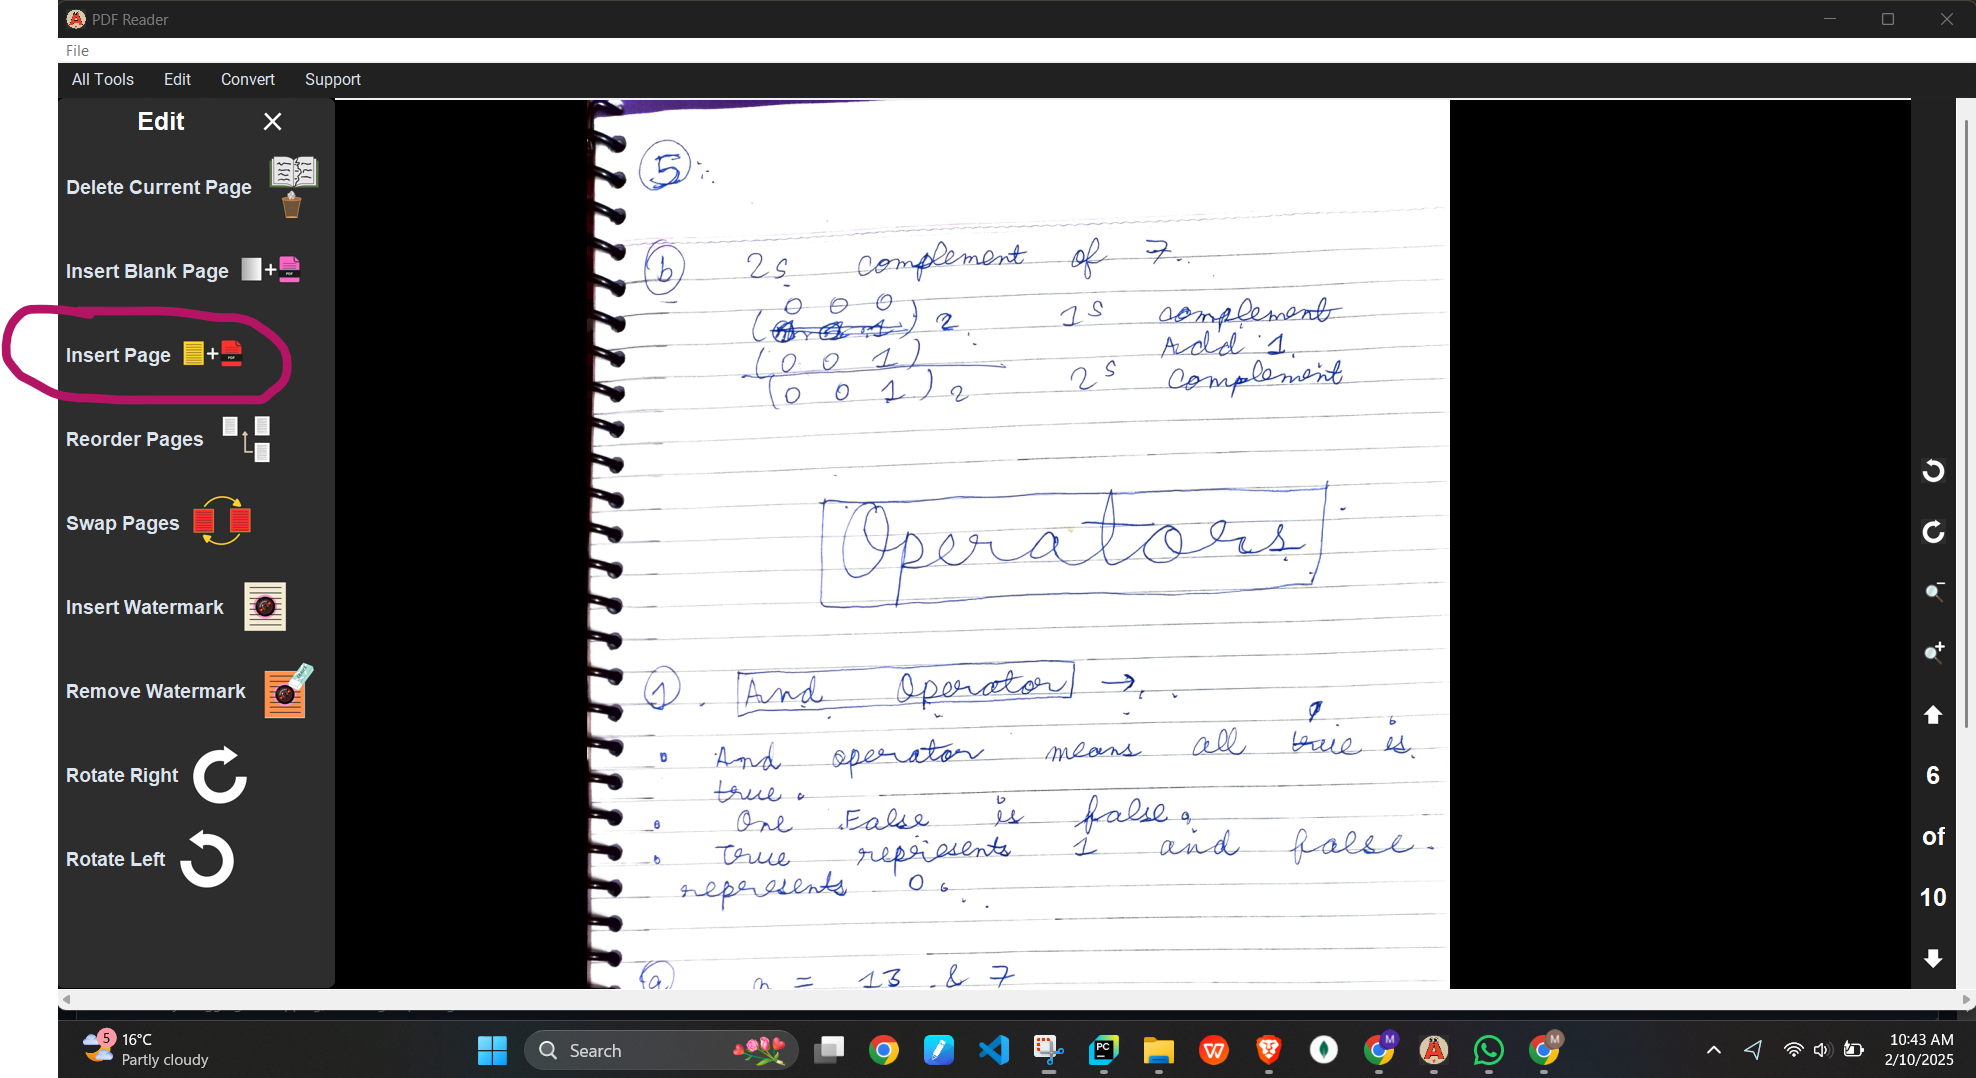 PDF Reader
File
All Tools Edit Convert Support
Edit
Delete Current Page
Insert Blank Page
Insert Page
Reorder Pages
Swap Pages
Insert Watermark
Remove Watermark
Rotate Right
Rotate Left
5
b 2s complement of 7.
0 0 0
( ) 2 1s complement
(0 0 1) Add 1.
(0 0 1) 2 2s complement
Operators
1. And Operator →
And operator means all true is
true.
One False is false.
True represents 1 and false.
represents 0.
a = 13 & 7
6
of
10
5
16°C
Partly cloudy
Search
10:43 AM
2/10/2025